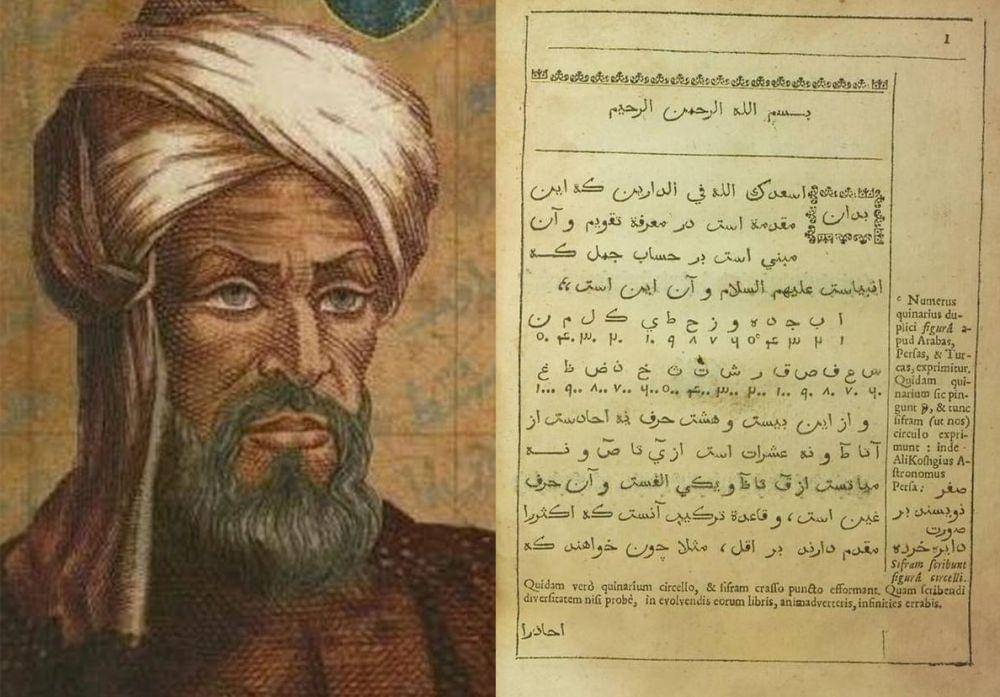 1
بسم الله الرحمن الرحيم
بدان اسعدك الله في الدارين كه اين
مقدمة است در معرفة تقويم و آن
مبني است بر حساب جمل كه
انبياست عليهم السلام و آن اين است،،
ا ب ج د ه و ز ح ط ي ك ل م ن
١ ٢ ٣ ۴ ۵ ٦ ٧ ٨ ٩ ١٠ ٢٠ ٣٠ ۴٠ ۵٠
س ع ف ص ق ر ش ت ث خ ذ ض ظ غ
٦٠ ٧٠ ٨٠ ٩٠ ١٠٠ ٢٠٠ ٣٠٠ ۴٠٠ ۵٠٠ ٦٠٠ ٧٠٠ ٨٠٠ ٩٠٠ ١٠٠٠
و از اين بيست و هشت حرف نه احادست از
آ تا ط و نه عشرات است از ي تا ص و نه
مياتست از ق تا ظ و يكي الفست و آن حرف
غين است، و قاعدة تركيب آنست كه اكثررا
مقدم دارند بر اقل، مثلا چون خواهند كه
c Numerus
quinarius du-
plici figurâ a-
pud Arabas,
Persas, & Tur-
cas, exprimitur.
Quidam qui-
narium sic pin-
gunt, & tunc
sifram (ut nos)
circulo expri-
munt : inde
AliKoshgius A-
stronomus
Persa: صفر
نويسند بر
صورت
دايره خرده
Sifram scribunt
figurâ circelli.
Quidam verò quinarium circello, & sifram crasso puncto efformant. Quam scribendi
diversitatem nisi probè, in evolvendis eorum libris, animadverteris, infinities errabis.
احادرا